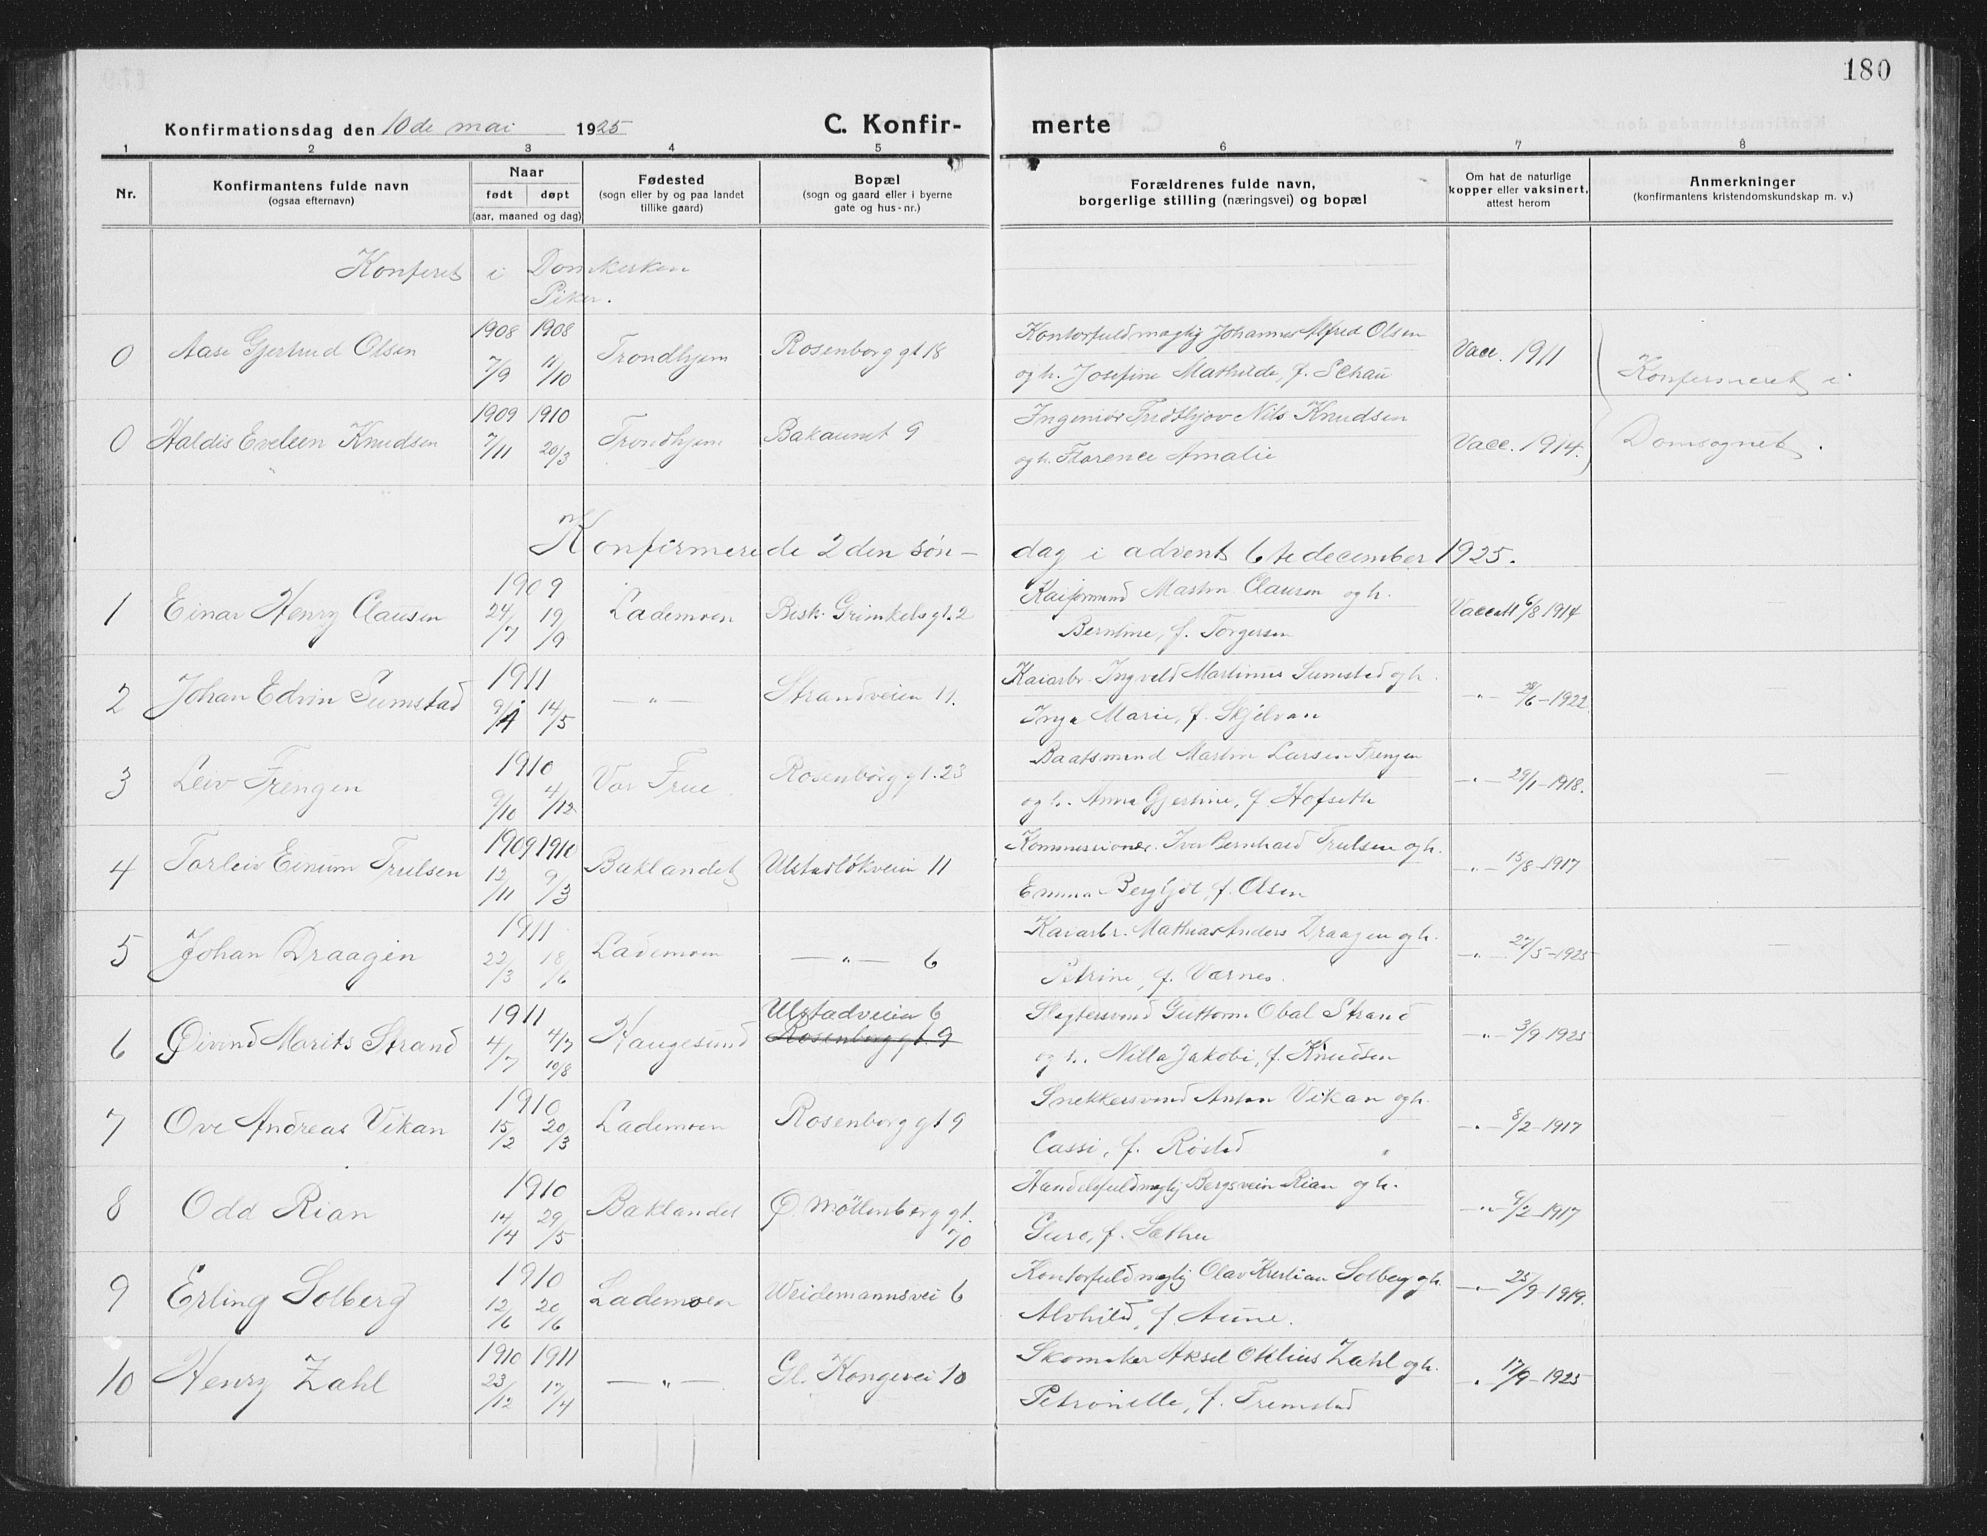 180
Konfirmationsdag den 10de mai 1925 C. Konfir- merte
1 2 3 4 5 6 7 8
Nr. Konfirmantens fulde navn (ogsaa efternavn) Naar født døpt (aar, maaned og dag) Fødested (sogn eller by og paa landet tillike gaard) Bopæl (sogn og gaard eller i byerne gate og hus-nr.) Forældrenes fulde navn, borgerlige stilling (næringsvei) og bopæl Om hat de naturlige kopper eller vaksinert, attest herom Anmerkninger (konfirmantens kristendomskundskap m. v.)
Konferet i Domkirken
Piker.
0 Aase Gjertrud Olsen 1908 7/9 1908 11/10 Trondhjem Rosenborg gt 18 Kontorfuldmægtig Johannes Alfred Olsen
og h. Josefine Mathilde, f. Schau Vacc. 1911 Konfirmeret i
0 Haldis Eveleen Knudsen 1909 7/11 1910 20/3 Trondhjem Bakaunet 9 Ingeniør Fridthjov Nils Knudsen
og h. Florence Amalie Vacc. 1914. Domsognet.
Konfirmerede 2den søn- dag i advent 6te december 1925.
1 Einar Henry Clausen 1909 24/7 19/9 Lademoen Besk. Grimkels gt. 2 Kaiformand Martin Clausen og h.
Berntine, f. Torgersen Vacc. att 6/8 1914
2 Johan Edvin Sumstad 1911 9/4 14/5 — " — Strandveien 11. Kaiarbr. Ingveld Martinus Sumstad og h.
Inga Marie, f. Skjelvan — " — 28/6-1922.
3 Leiv Frengen 1910 9/10 4/12 Vor Frue Rosenborg gt. 23 Baatsmand Martin Larsen Frengen
og h. Anna Gjertine, f Hofseth — " — 29/1-1918.
4 Torleiv Einum Trulsen 1909 12/11 1910 9/3 Baklandet Ulstadløkveien 11 Kommissionær. Ivar Bernhard Trulsen og h.
Emma Bergljot, f. Olsen — " — 15/8-1917
5 Johan Draagen 1911 22/3 18/6 Lademoen — " — 6 Kaiarbr. Mathias Anders Draagen og h.
Petrine, f. Værnes. — " — 27/5-1925
6 Øivind Marits Strand 1911 4/7 4/7 10/8 Haugesund Ulstadveien 6
Rosenborg gt. 9 Slagtersvend Guttorm Obal Strand
og h. Nilla Jakobi, f. Knudsen — " — 3/9 1925
7 Ove Andreas Vikan 1910 15/2 20/3 Lademoen Rosenborg gt 9 Snekkersvend Anton Vikan og h.
Cassi, f. Røstad — " — 8/2-1917
8 Odd Rian 1910 14/4 29/5 Baklandet Ø. Møllenberg gt. 70 Handelsfuldmægtig Bergsvein Rian og h.
Guro, f. Sæther — " — 9/2-1917
9 Erling Solberg 1910 12/6 20/6 Lademoen Weidemannsvei 6 Kontorfuldmægtig Olav Kristian Solberg og h.
Alvhild, f Aune. — " — 25/9-1919.
10 Henry Zahl 1910 23/12 1911 17/4 — " — Gl. Kongevei 10 Skomaker Aksel Otelius Zahl og h.
Petronelle, f. Fremstad " 17/9-1925